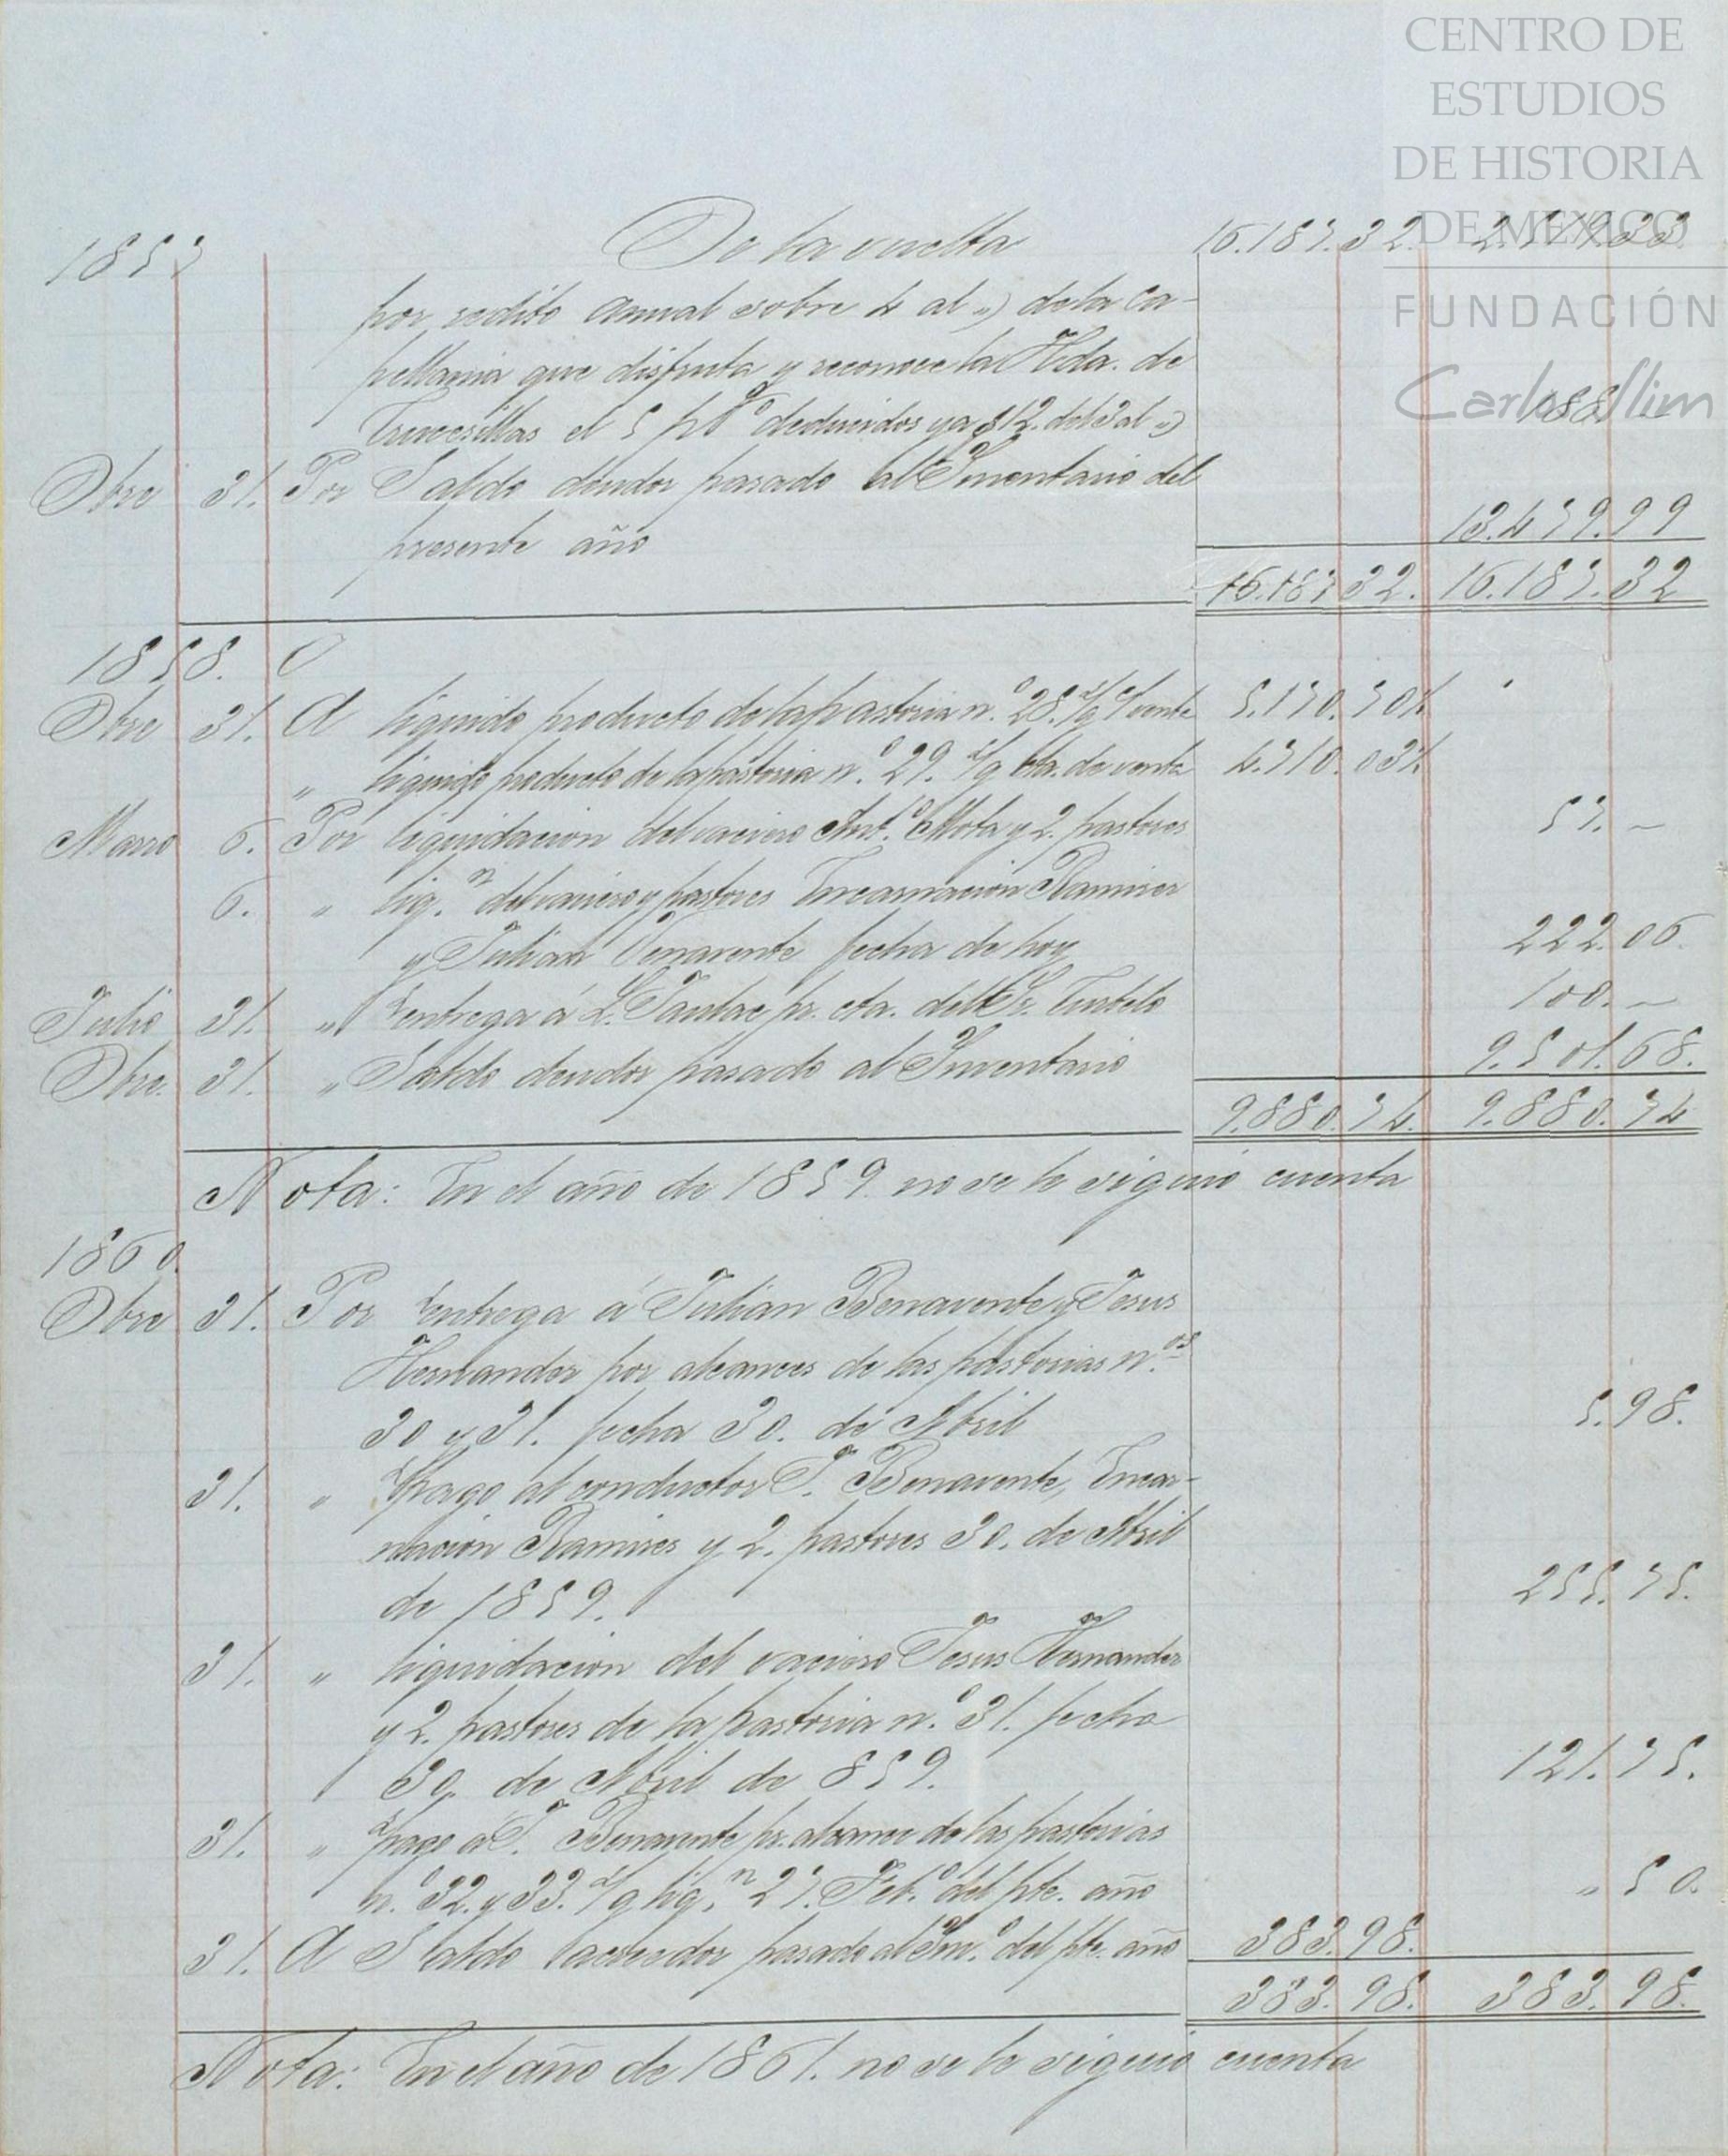 CENTRO DE
ESTUDIOS
DE HISTORIA
DE MEXICO
FUNDACIÓN
Carlos Slim
1857 De la vuelta 16.187.32. 2.519.33
por redito anual sobre 4 al ") de la Ca-
pellania que disfruta y reconoce la Hda. de
el 5 p% deducidos ya $12. del 3 al ") 188. –
Dbre 31. Por Saldo deudor pasado al Inventario del
presente año 13.479.99
16.187.32. 16.187.32
1858.
Dbre 31. A liquido producto de la pastoria n.º 28. s/g c/ venta 5.170.70½
" liquido producto de la pastoria n.º 29. s/g cta. de venta 4.710.03½
Marzo 6. Por liquidacion del vaciero Ant.º Mota y 2. pastores 57. –
6. " liq.n del vaciero y pastores Encarnacion Ramirez
y Julian Venavente fecha de hoy 222.06.
Julio 31. " entrega á L. pr. cta. del Sr. 100. –
Dbre. 31. " Saldo deudor pasado al Inventario 9.501.68.
9.880.74. 9.880.74
Nota: En el año de 1859. no se le siguió cuenta
1860.
Dbre 31. Por entrega á Julian Benavente y Jesus
Hernandez por alcances de las pastorias n.os
30 y 31. fecha 30. de Abril 5.98.
31. " pago al conductor J. Benavente, Encar-
nacion Ramires y 2. pastores 30. de Abril
de 1859. 255.75.
31. " liquidacion del vaciero Jesus Hernandez
y 2. pastores de la pastoria n.º 31. fecha
30. de Abril de 859. 121.75.
31. " pago á J. Benavente pr. alcance de las pastorias
n.º 32. y 33. s/g liq.n 27. Feb.º del pte. año " 50.
31. A Saldo acreedor pasado al Inv.º del pte. año 383.98.
383.98. 383.98.
Nota: En el año de 1861. no se le siguió cuenta